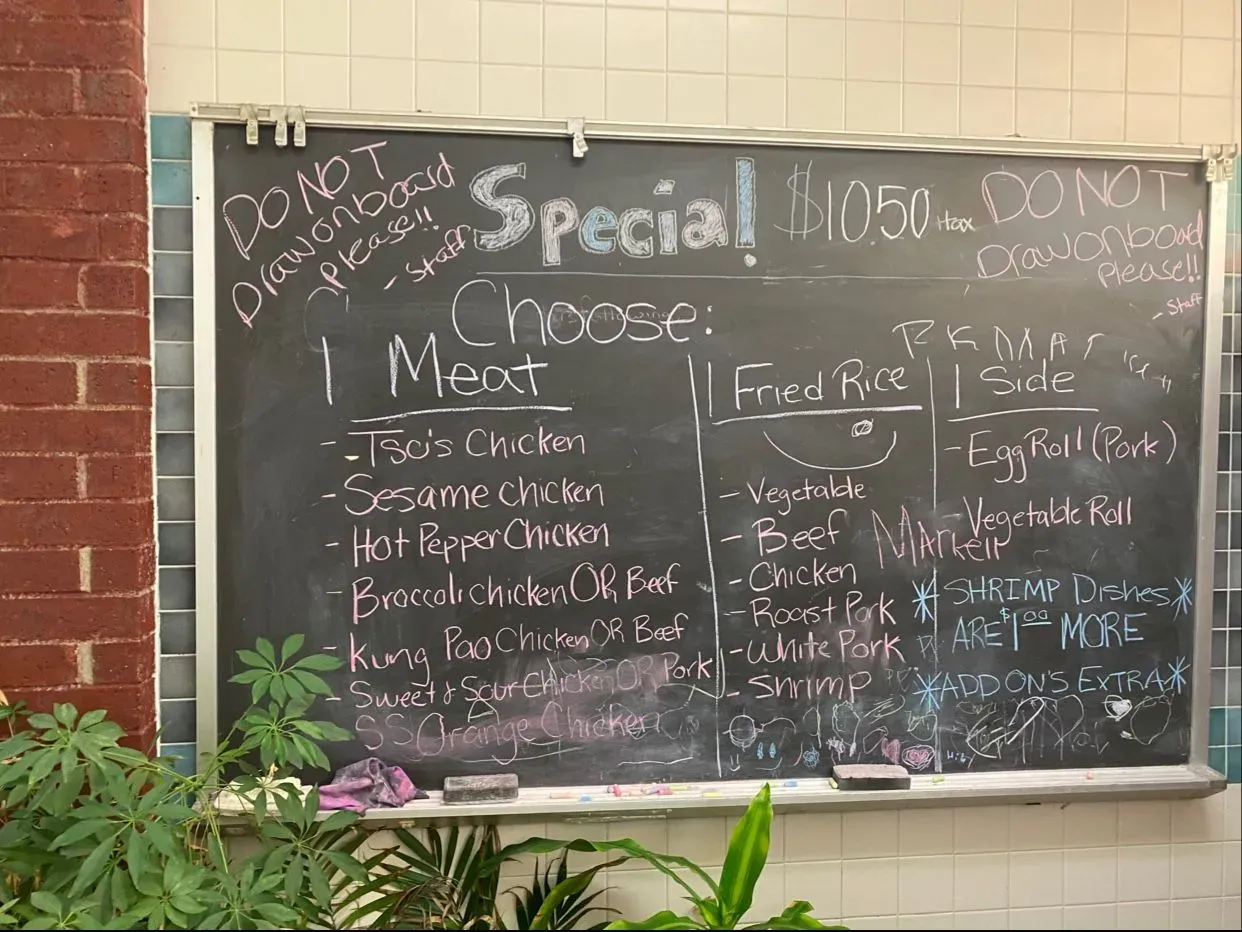 DO NOT
Draw on board
please!!
- Staff
Special! $10.50 +tax
DO NOT
Draw on board
please!!
- Staff
Choose:
1 Meat
- Tso's Chicken
- Sesame chicken
- Hot Pepper Chicken
- Broccoli chicken OR Beef
- Kung Pao Chicken OR Beef
- Sweet & Sour Chicken OR Pork
SS Orange Chicken
1 Fried Rice
- Vegetable
- Beef
- Chicken
- Roast Pork
- White Pork
- Shrimp
1 Side
- Egg Roll (Pork)
- Vegetable Roll
* SHRIMP Dishes *
ARE $1.00 MORE
* ADD ON'S EXTRA *